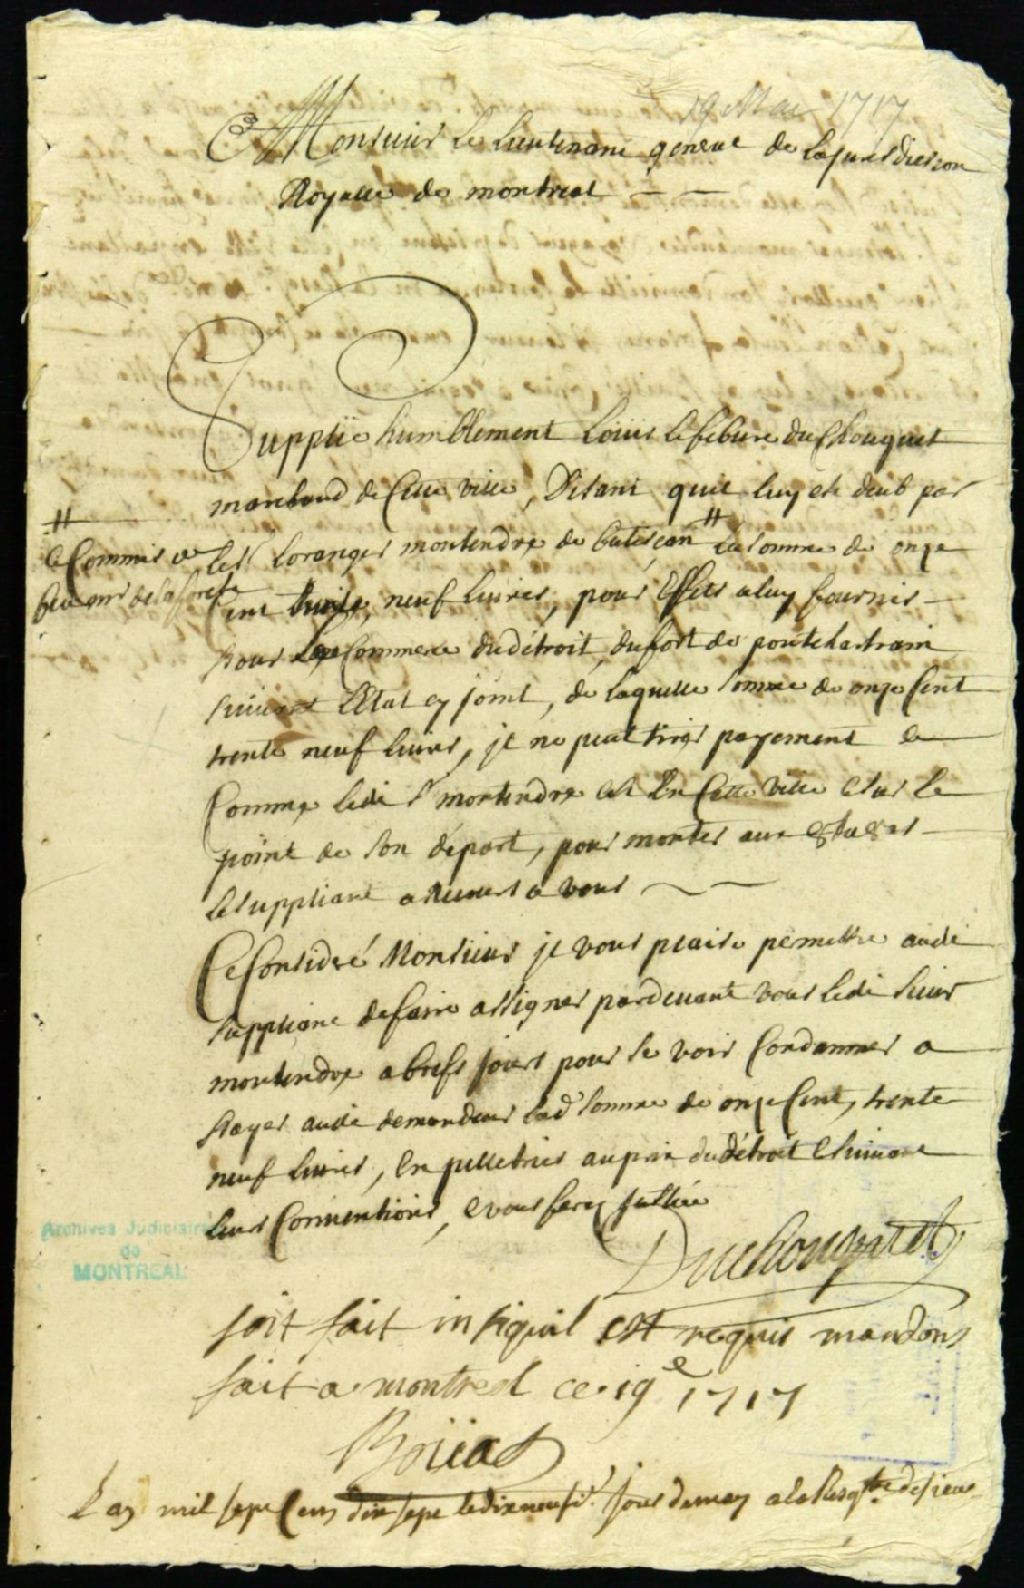 19 Mai 1717
A Monsieur le lieutenant general de la jurisdiction
Royalle de montreal
Supplie humblement Loüis lefebure duChouquet
marchand de Cette ville, Disant quil luy est deub par
le Sr. Loranger montendre de batiscan # La somme de onze
#
Commis
sieur de la forest
Cent trente, neuf livres, pour Effets a luy fournis
pour le Commerce du détroit, du fort de pontchartrain
suivant L'Etat cy joint, de laquelle somme de onze Cent
trente neuf livres, il ne peut tirer payement et
Comme ledit Sr montendre est En Cette ville et sur le
point de son départ, pour monter aux
Le suppliant a recours a vous
Ce Considéré Monsieur il vous plaise permettre audit
suppliant de faire assigner pardevant vous ledit sieur
montendre a brefs jours pour se voir Condamner a
payer audit demandeur lad somme de onze Cent, trente
neuf livres, En pelletries au prix du détroit Et suivant
leurs Conventions, et vous ferez justice
Duchouquet
Archives Judiciaires
de
MONTREAL
soit fait insi quil est requis mandons
fait a montreal ce 19e 1717
Boüat
L an mil sept Cens dix sept le dixneufe. jour de may a la Reqte de sieur